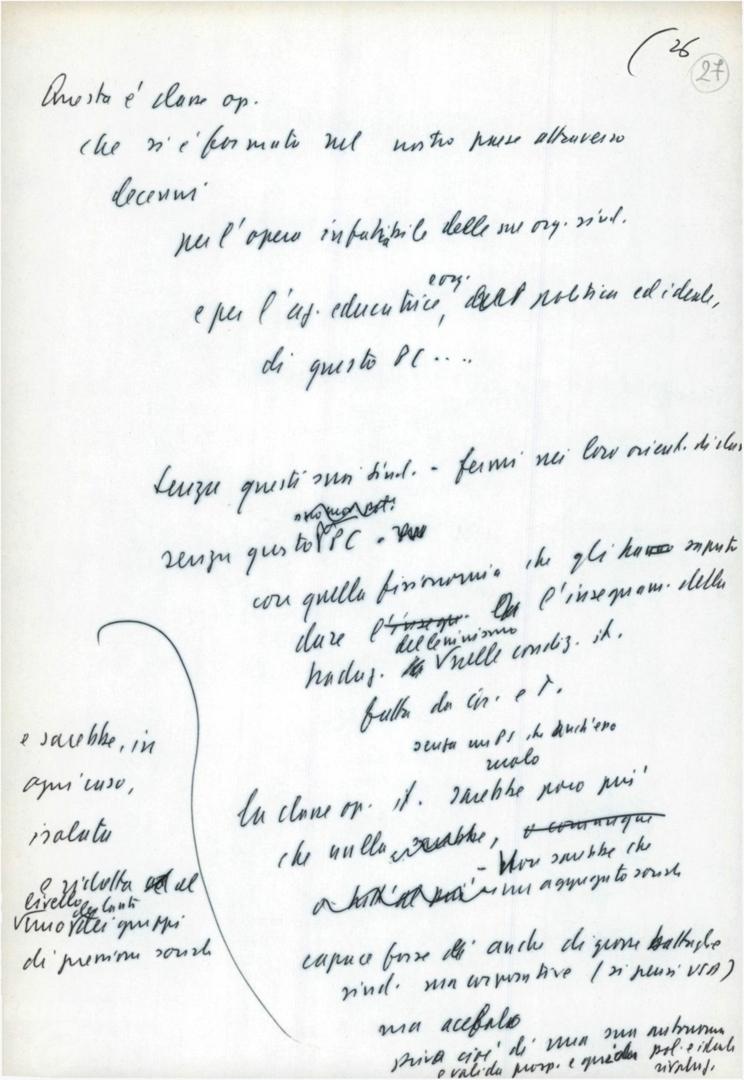 26
27
Questa è classe op.
che si è formata nel nostro paese attraverso
decenni
per l'opera infaticabile delle sue org. sind.
e per l'az. educatrice, e org. politica ed ideale,
di questo PC ....
Senza questi suoi sind. - fermi nei loro orient. di clas
senza questo PC -
con quella fisionomia che gli ha saputo
dare l'insegnam. della
traduz. del leninismo nelle condiz. it.
fatta da Gr. e T.
senza un PS che anch'esso
ruolo
la classe op. it. sarebbe poco più
che nulla sarebbe, o comunque
- Non sarebbe che
un aggregato sociale
capace forse di anche di grosse battaglie
sind. ma corporative (si pensi USA)
ma acefalo
priva cioè di una sua autonoma
e valida prosp. e guida pol. e ideale
rivoluz.
e sarebbe, in
ogni caso,
isolata
e ridotta al
livello
uno dei tanti gruppi
di pressione sociale